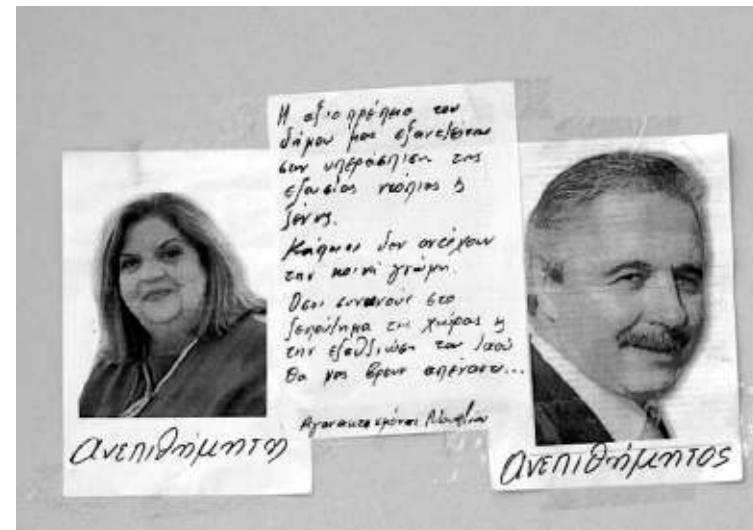 Η αξιοπρέπεια του
δήμου μας εξαντλείται
στην υπεράσπιση της
εξουσίας ντόπιας ή
ξένης.
Κάποιοι δεν αντέχουν
την κοινή γνώμη.
Όσοι συναινούν στο
ξεπούλημα της χώρας ή
την εξαθλίωση του λαού
θα μας βρουν απέναντι...
Αγανακτισμένοι
ανεπιθήμητη
ανεπιθήμητος